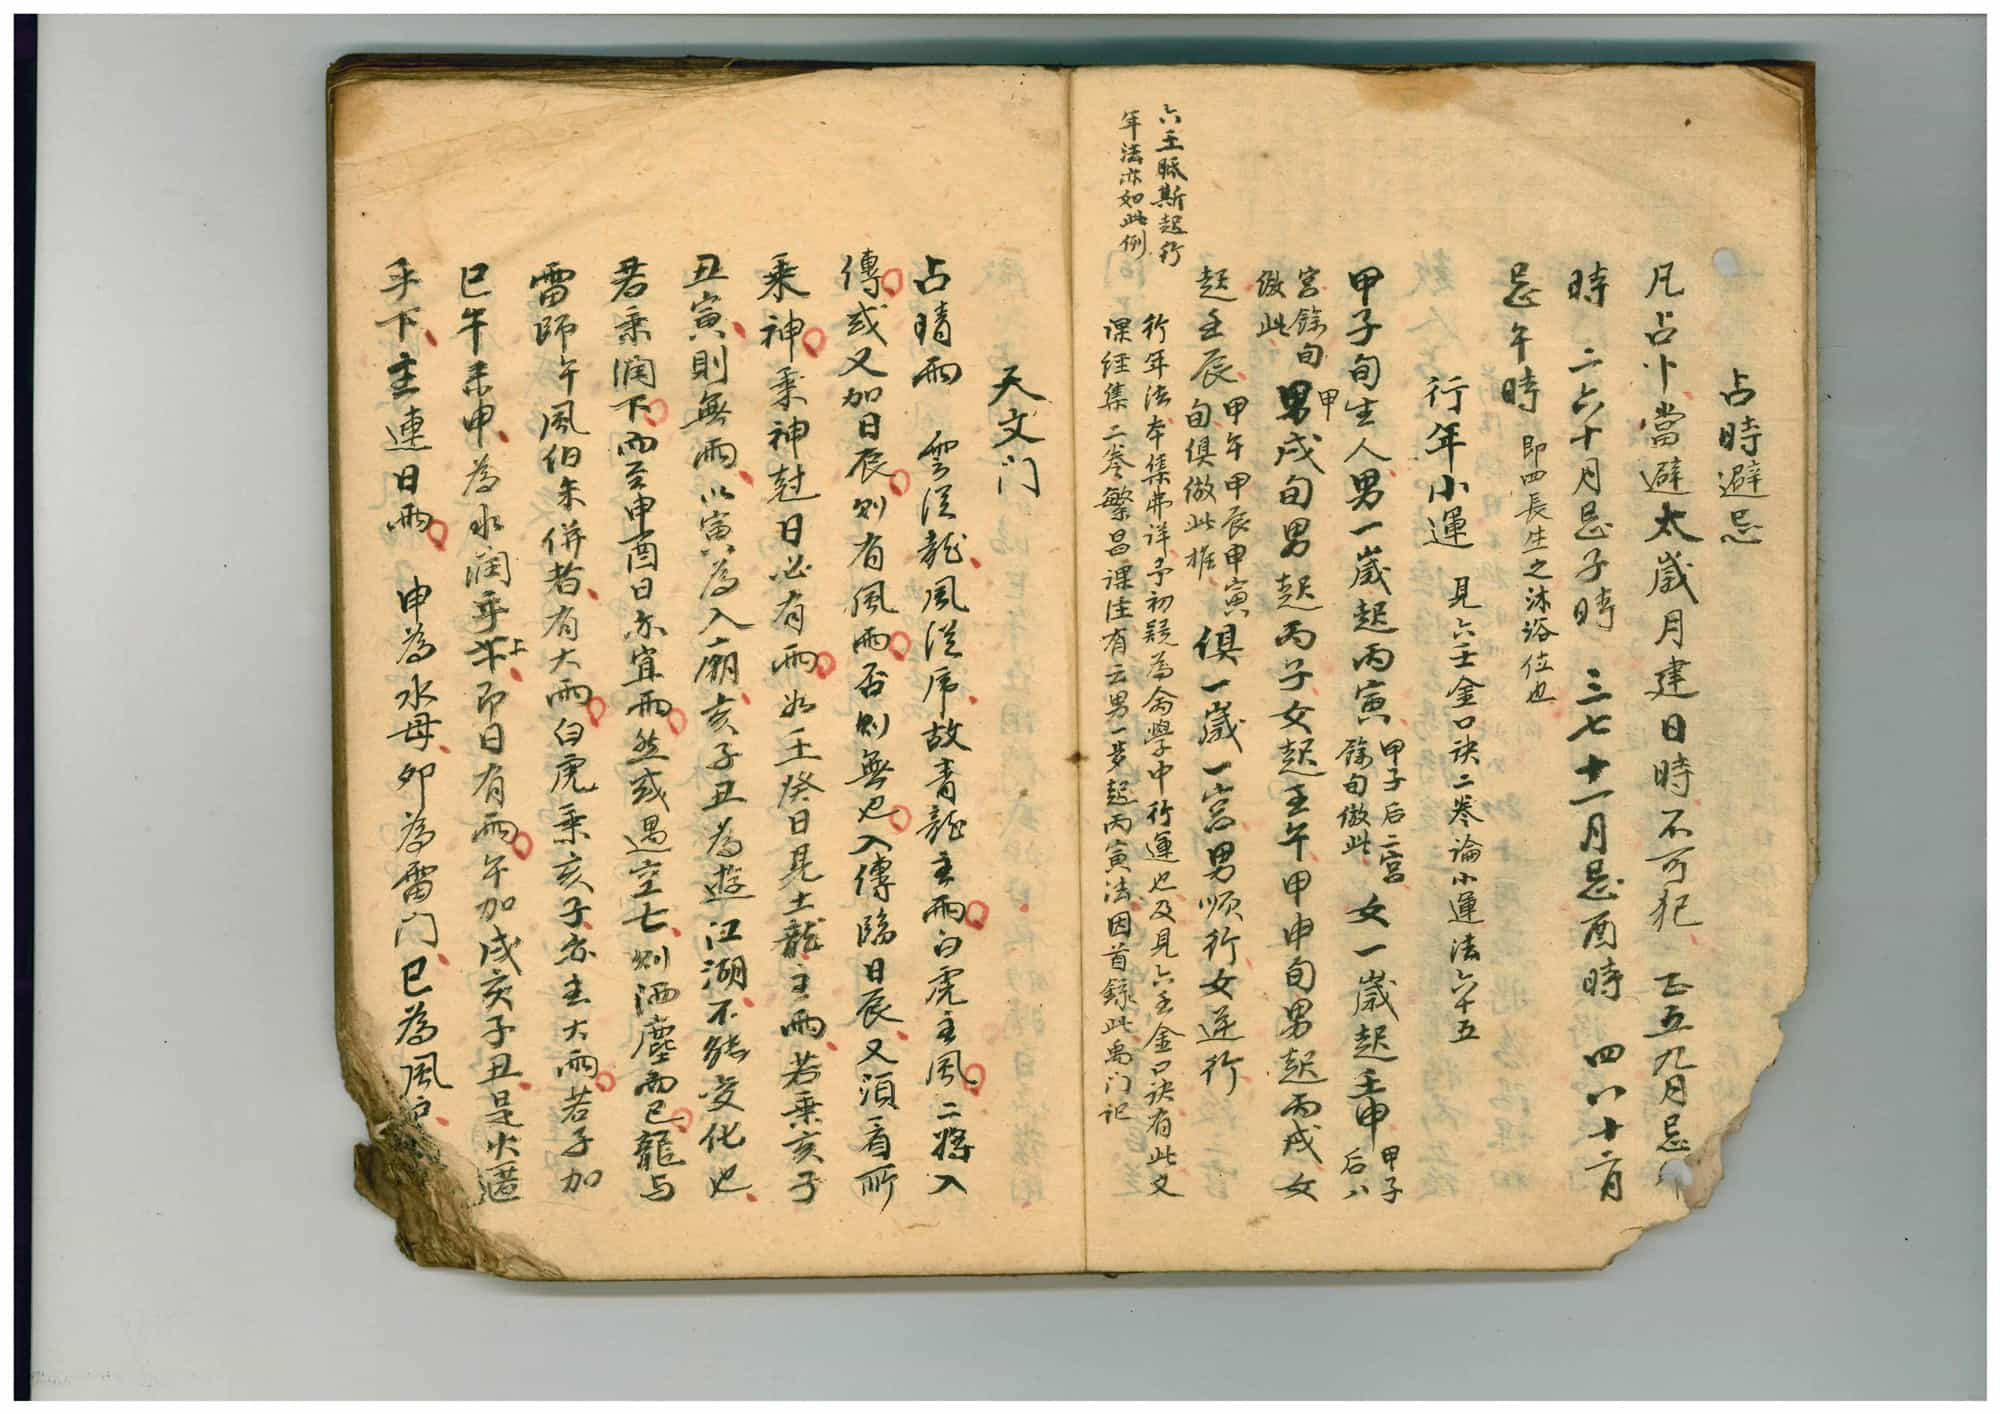 占時避忌
凡占卜當避太歲月建日時不可犯 正五九月忌卯
時 二六十月忌子時 三七十一月忌酉時 四八十二月
忌午時 即四長生之沐浴位也
行年小運 見六壬金口訣二卷論小運法六十五
甲子旬生人男一歲起丙寅 甲子后二宮餘旬倣此 女一歲起壬申 甲子后八
宮餘旬倣此 甲戌旬男起丙子女起壬午甲申旬男起丙戌女
起壬辰 甲午甲辰甲寅旬俱倣此推 俱一歲一宮男順行女逆行
行年法本集弗詳予初疑為禽學中行運也及見六壬金口訣有此文
课经集二卷繁昌課注有云男一岁起丙寅法因首錄此禹门記
六壬眎斯起行
年法亦如此例
天文门
占晴雨 雲從龍風從虎故青龍主雨白虎主風二將入
傳或又加日辰则有風雨否则無也入傳臨日辰又須看所
乘神乘神尅日必有雨如壬癸日見土龍主雨若乘亥子
丑寅則無雨以寅為入廟亥子丑為遊江湖不能变化也
若乘润下而至申酉日亦宜雨然或遇空亡则洒塵而已龍与
雷師午風伯未併者有大雨白虎乘亥子亦主大雨若子加
巳午未申為水润乎上即日有雨午加戌亥子丑是火遷
乎下主連日雨 申為水母卯為雷门巳為風户